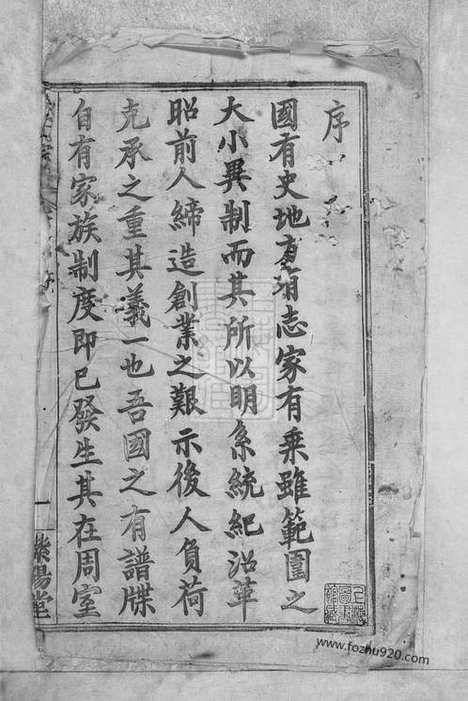 序
國有史地有志家有乘雖範圍之
大小異制而其所以明系統紀沿革
昭前人締造創業之艱示後人負荷
克承之重其義一也吾國之有譜牒
自有家族制度即已發生其在周室
一
紫陽堂
www.fozhu920.com